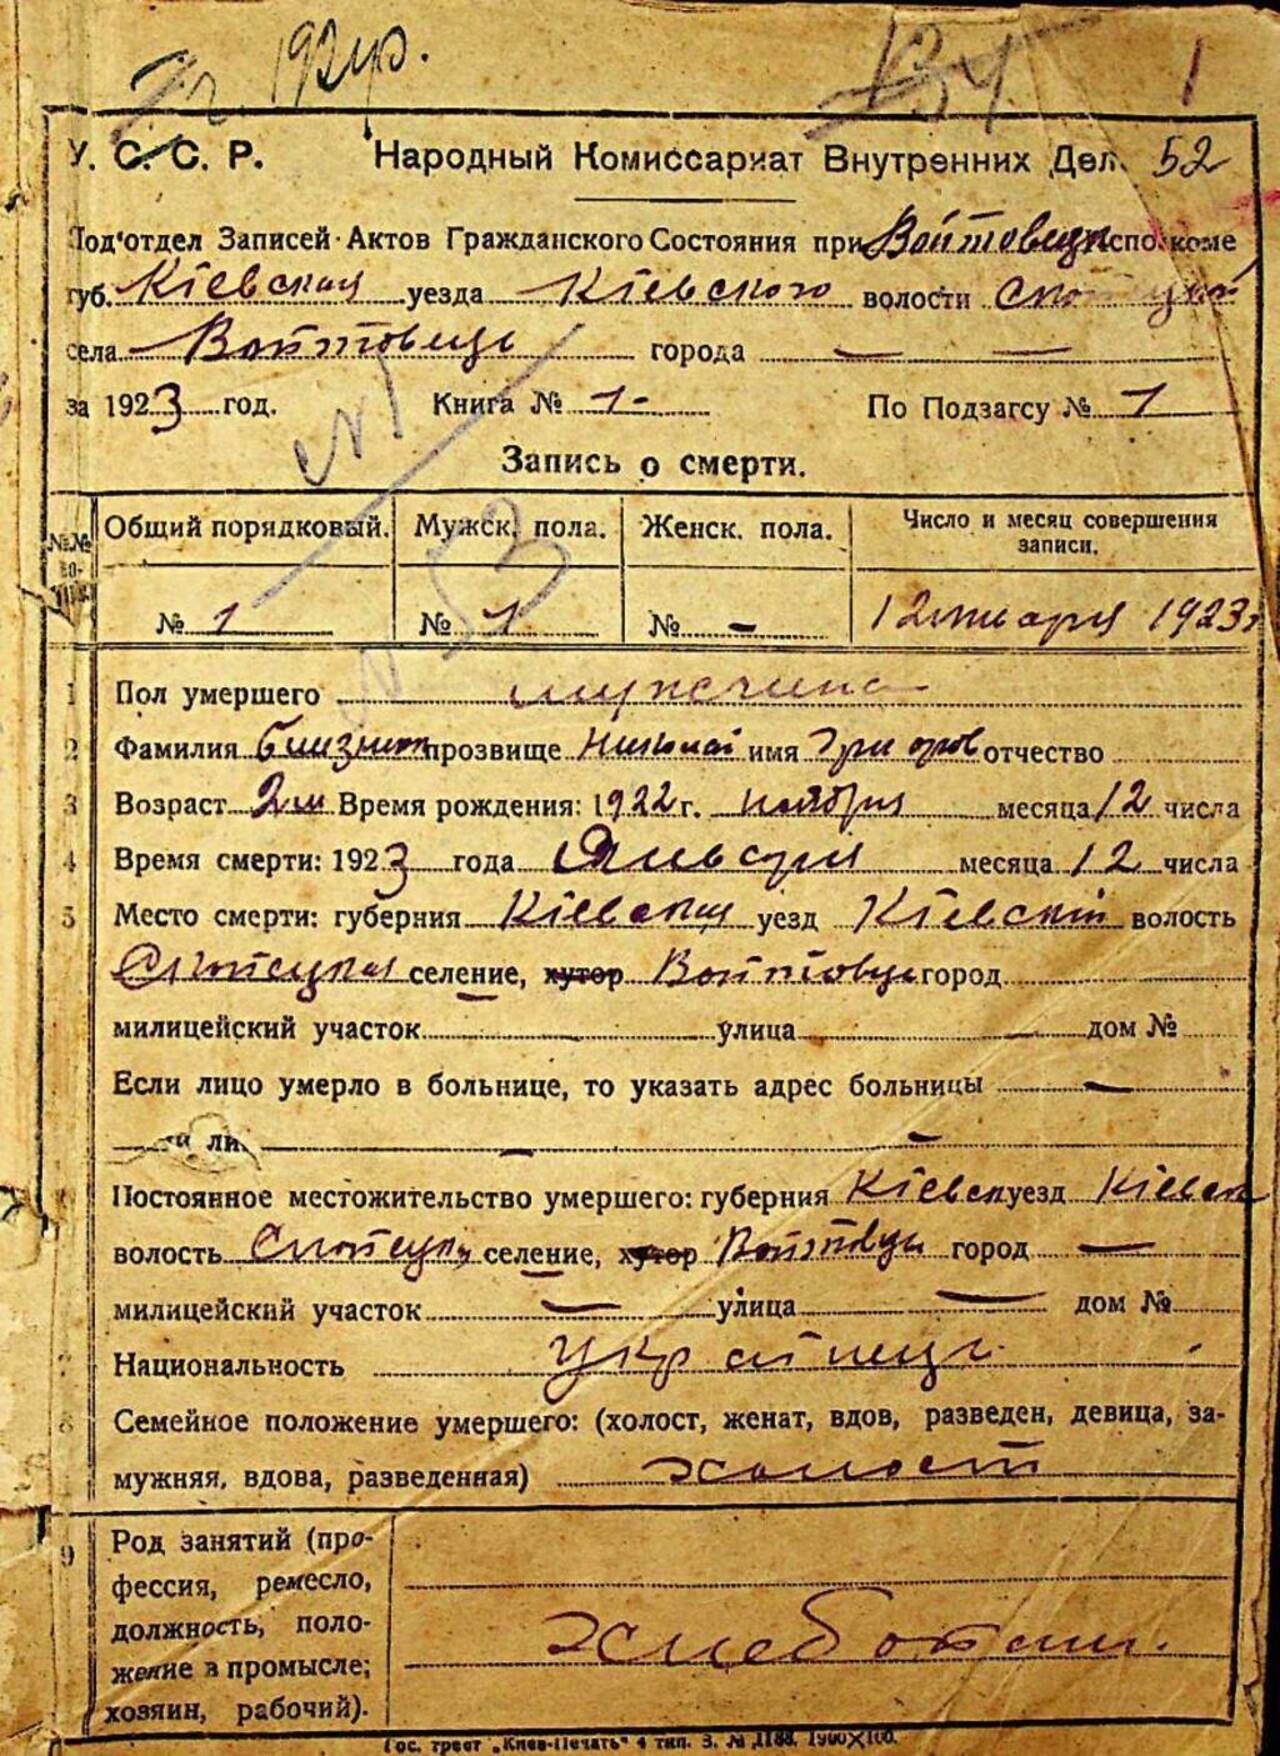 1
У. С. С. Р. Народный Комиссариат Внутренних Дел. 52
Под'отдел Записей Актов Гражданского Состояния при Войтовецк исполкоме
губ. Кіевская уезда Кіевского волости
села Войтовець города — —
за 1923 год. Книга № 1- По Подзагсу № 1
Запись о смерти.
Общий порядковый. Мужск. пола. Женск. пола. Число и месяц совершения записи.
№ 1 № 1 № - 12 января 1923г
1 Пол умершего мужчина
2 Фамилия Близнюк прозвище Николай имя Григоров отчество
3 Возраст 2 м Время рождения: 1922 г. ноября месяца 12 числа
4 Время смерти: 1923 года Января месяца 12 числа
5 Место смерти: губерния Кіевская уезд Кіевскій волость
селение, хутор Войтовце город
милицейский участок — улица — дом №
Если лицо умерло в больнице, то указать адрес больницы —
— —
Постоянное местожительство умершего: губерния Кіевск уезд Кіевск
волость селение, хутор Войтовцы город —
милицейский участок — улица — дом №
7 Национальность Украінець
8 Семейное положение умершего: (холост, женат, вдов, разведен, девица, за-
мужняя, вдова, разведенная) холост
9 Род занятий (про-
фессия, ремесло,
должность, поло-
жение в промысле;
хозяин, рабочий).
хлебопаш.
Гос. трест „Киев-Печать" 4 тип. З. № 1188. 1900×100.